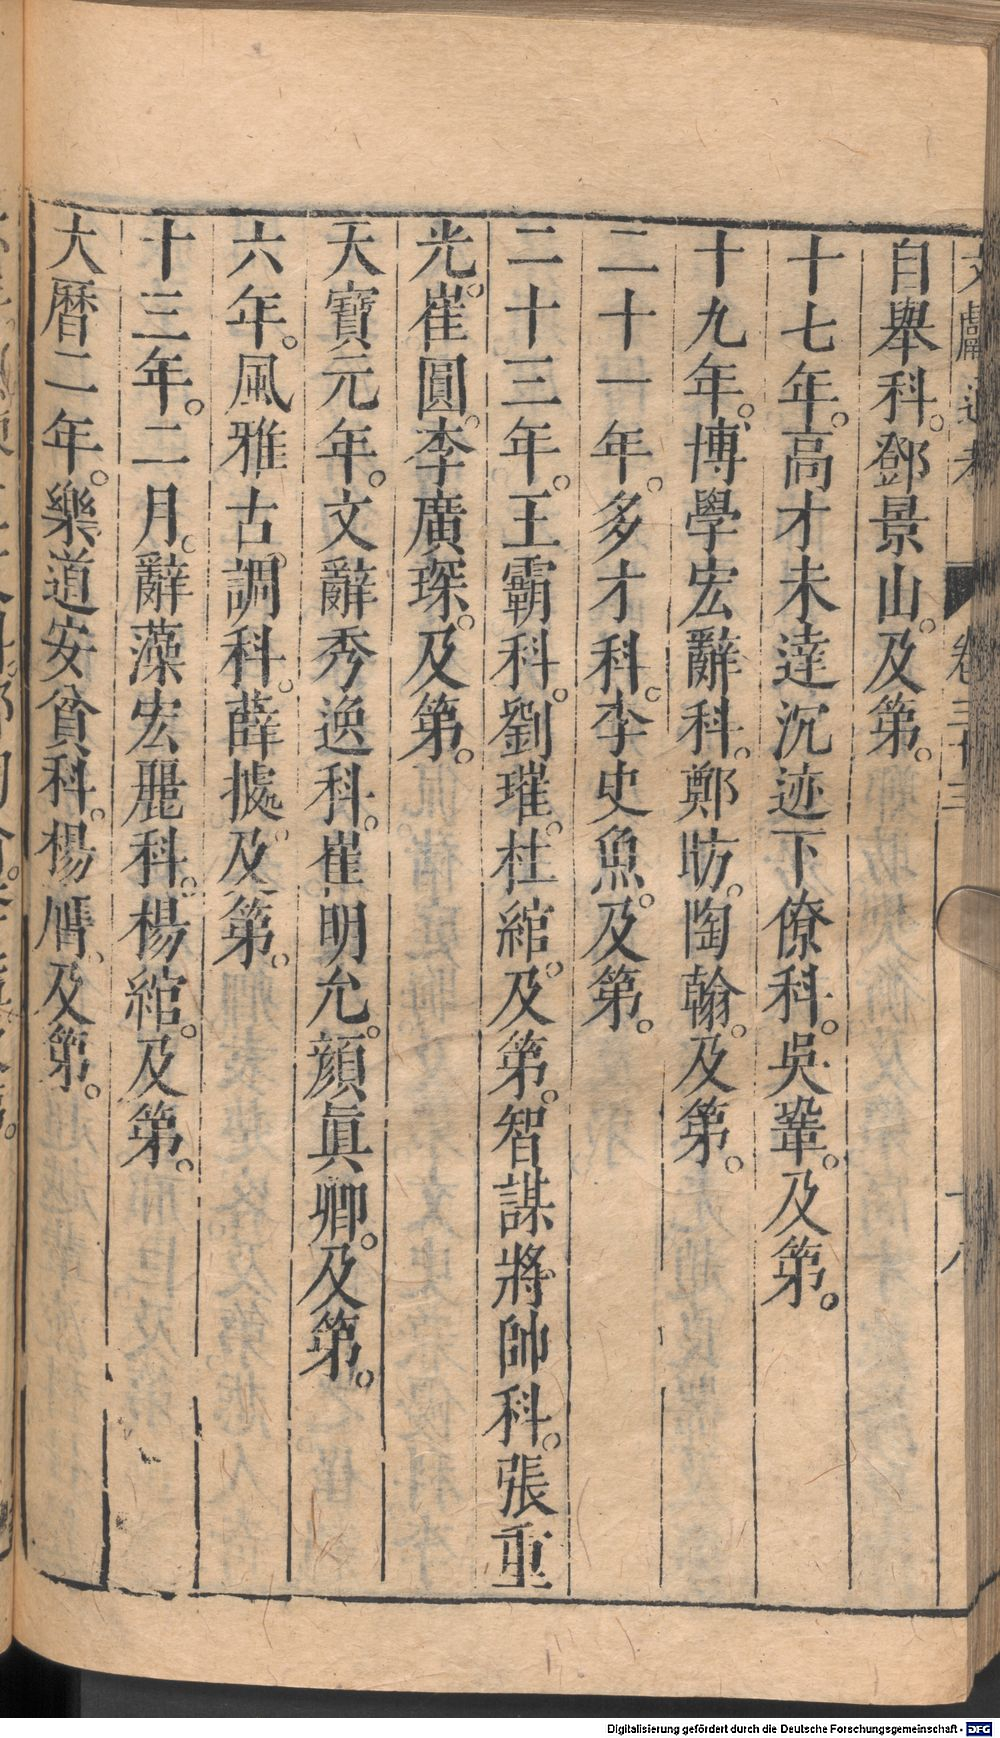 文獻通考 卷三十三 十八
自舉科。鄧景山。及第。
十七年。高才未達沉迹下僚科。吳鞏。及第。
十九年。博學宏辭科。鄭昉。陶翰。及第。
二十一年。多才科。李史魚。及第。
二十三年。王霸科。劉璀。杜綰。及第。智謀將帥科。張重
光。崔圓。李廣琛。及第。
天寶元年。文辭秀逸科。崔明允。顔眞卿。及第。
六年。風雅古調科。薛據。及第。
十三年。二月。辭藻宏麗科。楊綰。及第。
大曆二年。樂道安貧科。楊膺。及第。
Digitalisierung gefördert durch die Deutsche Forschungsgemeinschaft - DFG